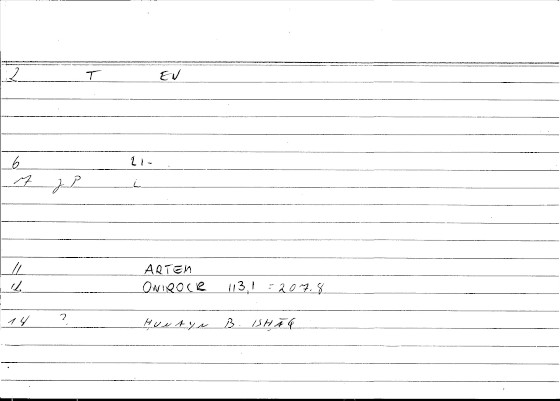 2 T EV
6 21-
γ P L
11 ARTEM
12 ONIROCR 113,1 = 207.8
14 ? ḤUNAYN B. ISḤĀQ